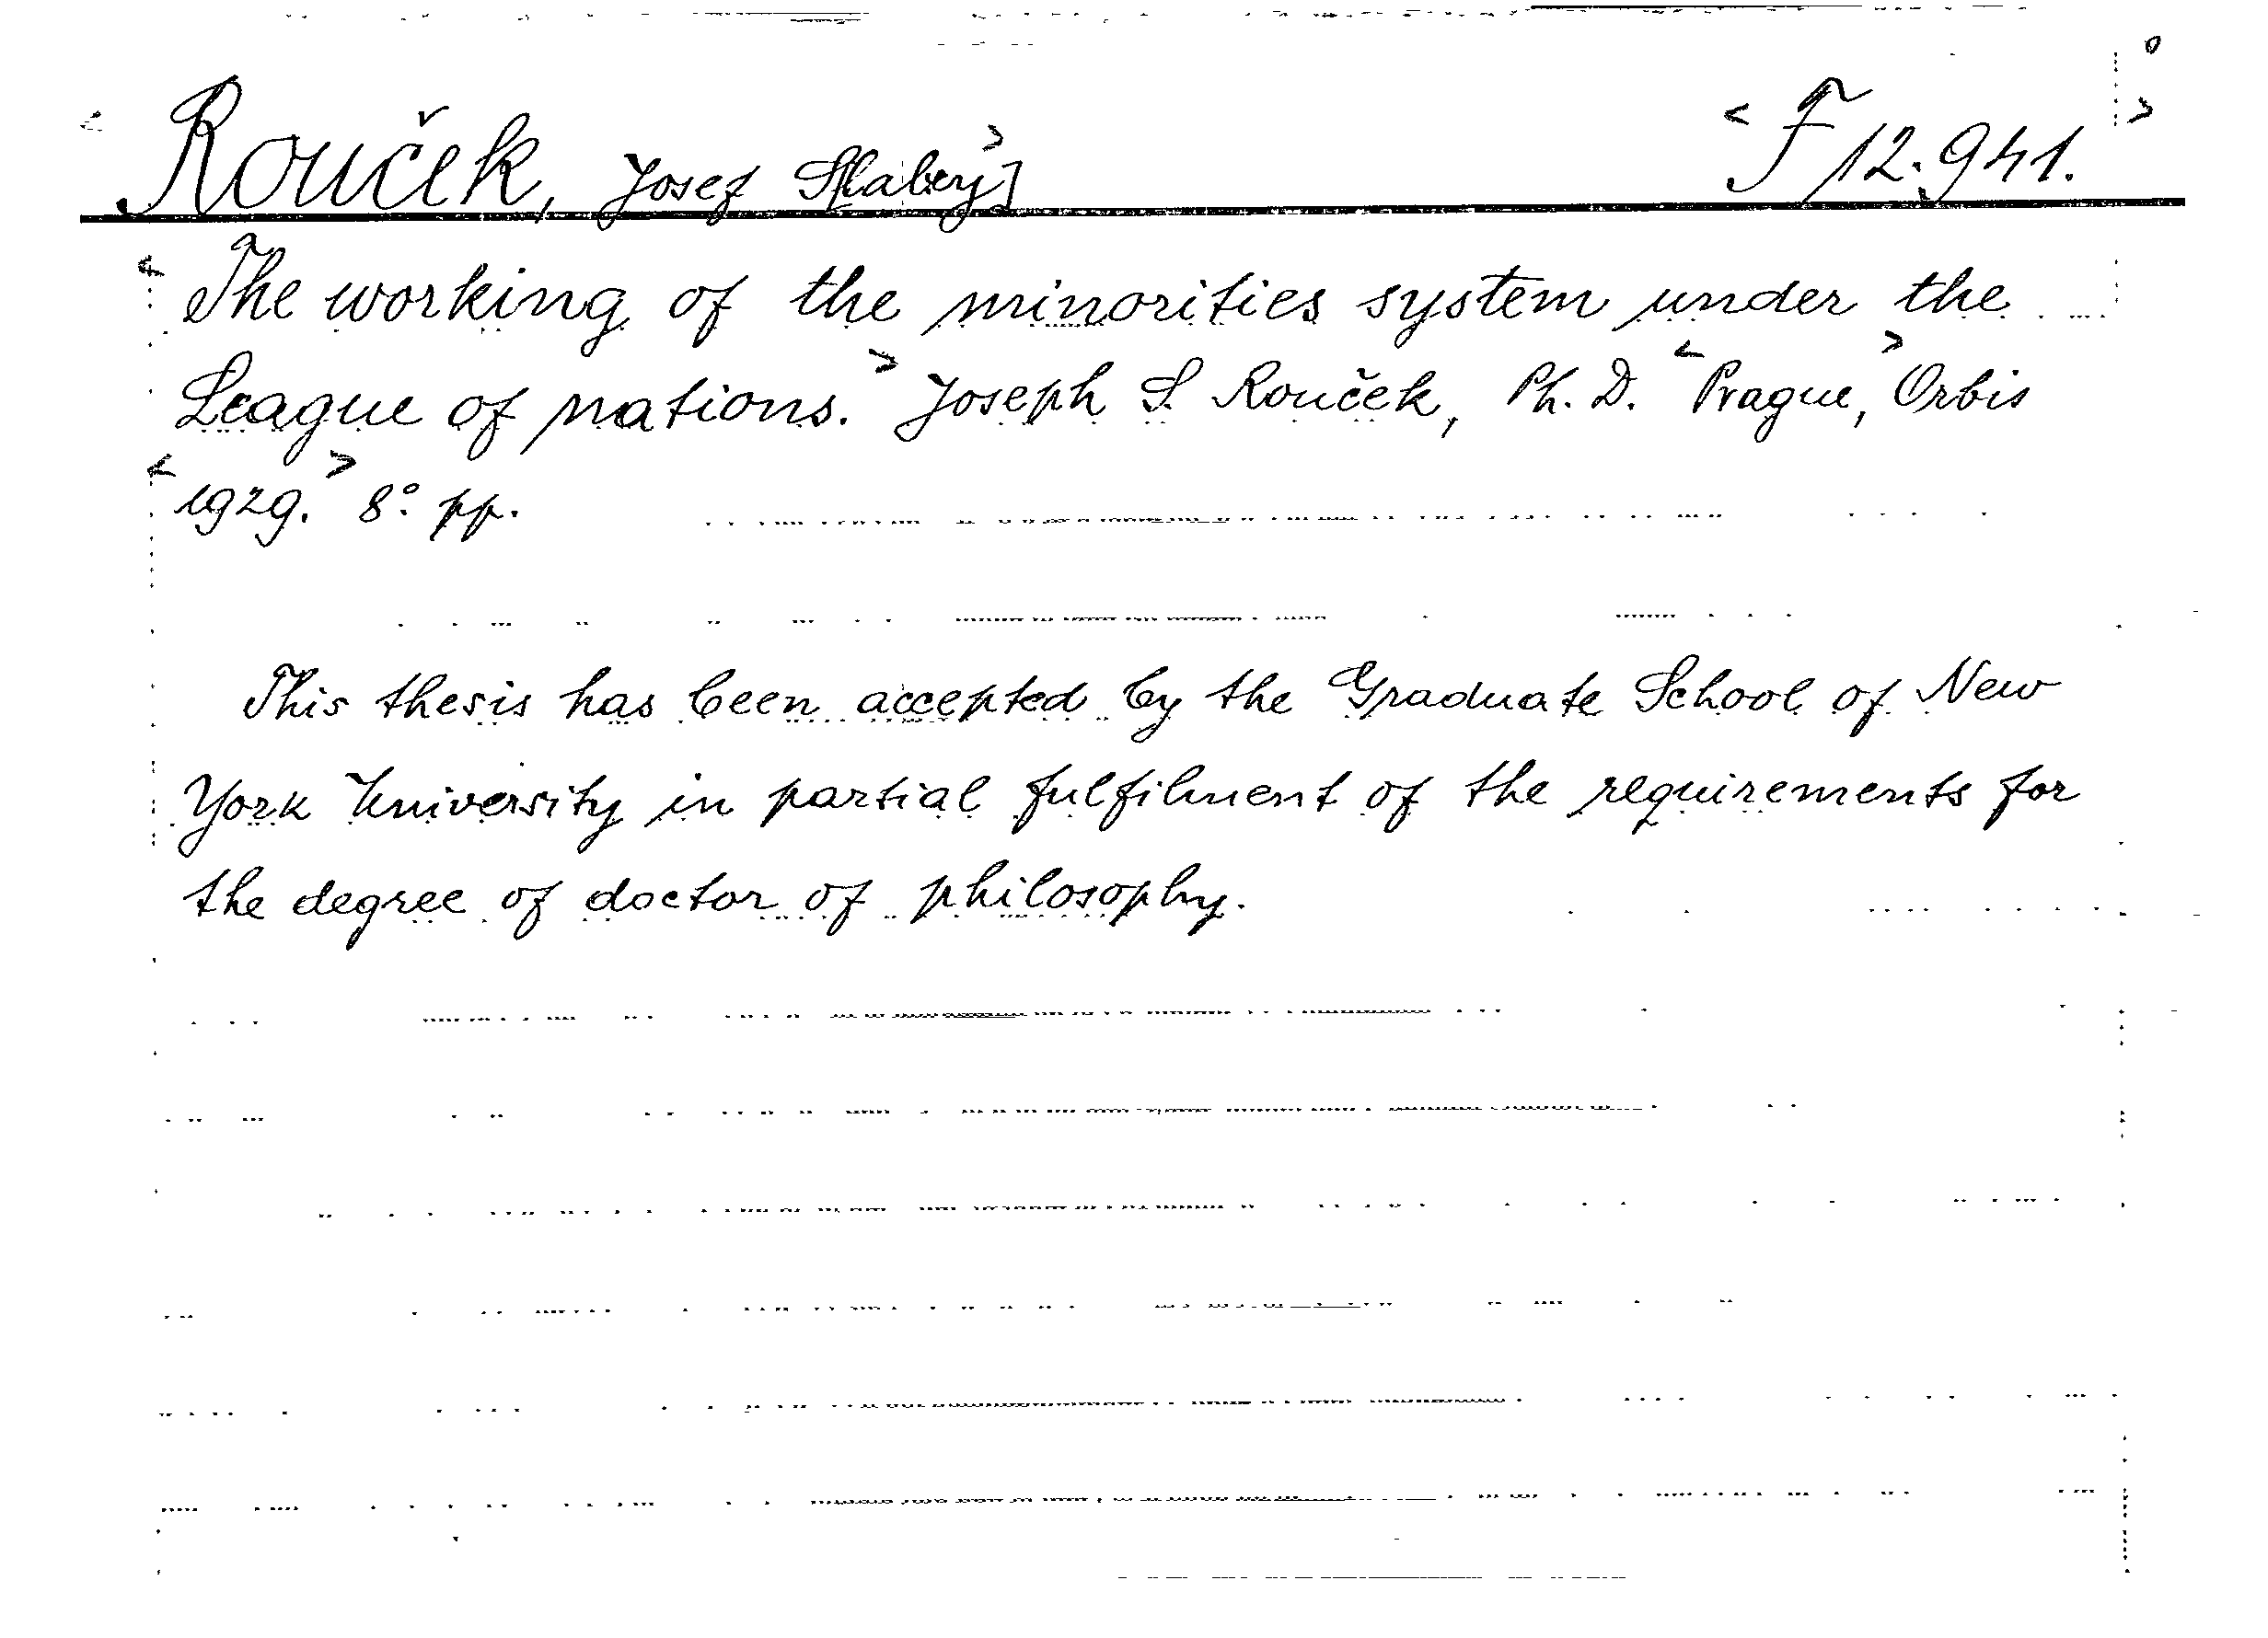 < Rouček, Josef S[labey]> < F 12.941. >
< The working of the minorities system under the
League of nations. > Joseph S. Rouček, Ph. D. < Prague, > Orbis
< 1929. > 8° pp.
This thesis has been accepted by the Graduate School of New
York University in partial fulfilment of the requirements for
the degree of doctor of philosophy.